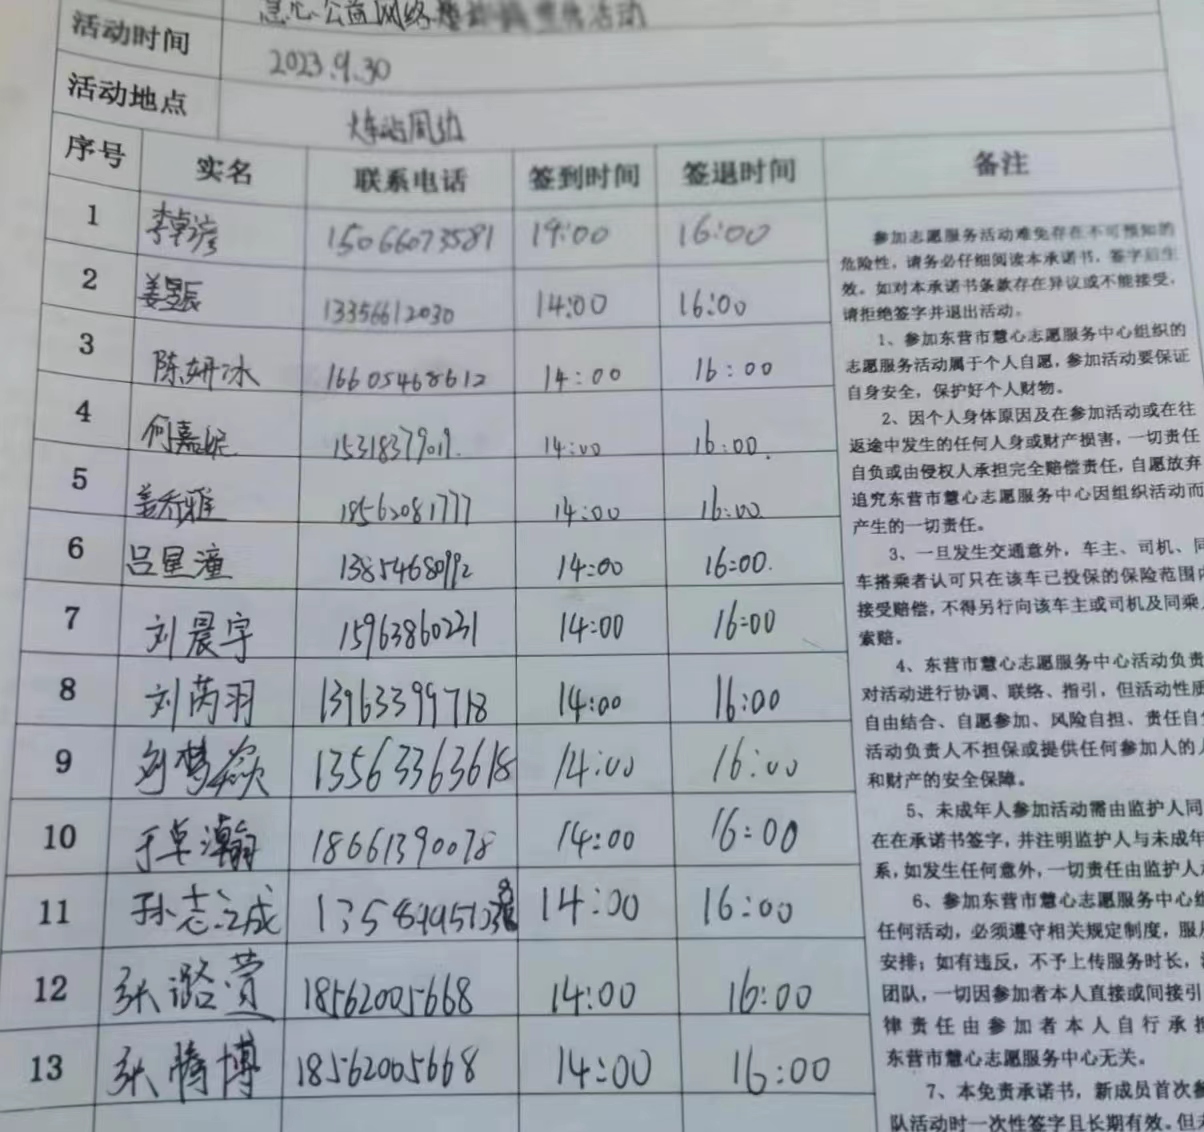 慧心公益网络
活动时间 2023.9.30
活动地点 火车站周边
序号 实名 联系电话 签到时间 签退时间 备注
1 李卓彦 15066073581 19:00 16:00
2 姜昱辰 13356612030 14:00 16:00
3 陈妍冰 16605468612 14:00 16:00
4 何嘉妮 15318379019. 14:00 16:00.
5 姜乔雅 18562081777 14:00 16:00
6 吕星潼 13854680992 14:00 16:00.
7 刘晨宇 15963860231 14:00 16:00
8 刘芮羽 13963399718 14:00 16:00
9 刘梦焱 13563363618 14:00 16:00
10 于卓瀚 18661390078 14:00 16:00
11 孙志诚 14:00 16:00
12 张潞萱 18562005668 14:00 16:00
13 张腾博 18562005668 14:00 16:00
参加志愿服务活动难免存在不可预知的
危险性，请务必仔细阅读本承诺书，签字后生
效。如对本承诺书条款存在异议或不能接受，
请拒绝签字并退出活动。
1、参加东营市慧心志愿服务中心组织的
志愿服务活动属于个人自愿，参加活动要保证
自身安全，保护好个人财物。
2、因个人身体原因及在参加活动或在往
返途中发生的任何人身或财产损害，一切责任
自负或由侵权人承担完全赔偿责任，自愿放弃
追究东营市慧心志愿服务中心因组织活动而
产生的一切责任。
3、一旦发生交通意外，车主、司机、同
车搭乘者认可只在该车已投保的保险范围内
接受赔偿，不得另行向该车主或司机及同乘人
索赔。
4、东营市慧心志愿服务中心活动负责
对活动进行协调、联络、指引，但活动性质
自由结合、自愿参加、风险自担、责任自
活动负责人不担保或提供任何参加人的人
和财产的安全保障。
5、未成年人参加活动需由监护人同
在在承诺书签字，并注明监护人与未成年
系，如发生任何意外，一切责任由监护人
6、参加东营市慧心志愿服务中心组
任何活动，必须遵守相关规定制度，服从
安排；如有违反，不予上传服务时长，
团队，一切因参加者本人直接或间接引
律责任由参加者本人自行承担
东营市慧心志愿服务中心无关。
7、本免责承诺书，新成员首次参
队活动时一次性签字且长期有效。但